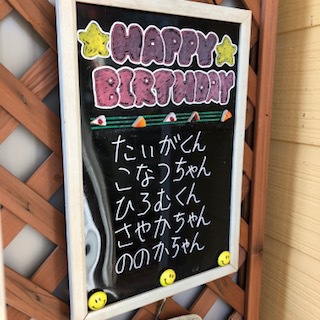 HAPPY
BIRTHDAY
たいがくん
こなつちゃん
ひろむくん
さやかちゃん
ののかちゃん